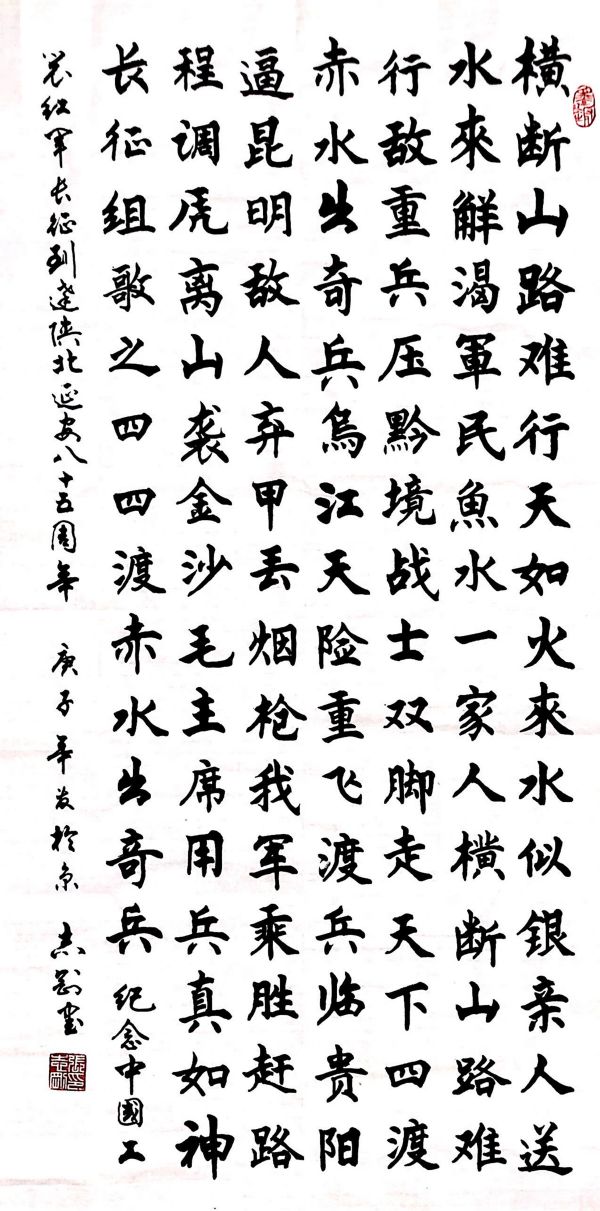 橫断山路难行天如火來水似銀亲人送
水來觧渴軍民魚水一家人橫断山路难
行敌重兵压黔境战士双脚走天下四渡
赤水出奇兵烏江天险重飞渡兵临贵阳
逼昆明敌人弃甲丢烟枪我军乘胜赶路
程调虎离山袭金沙毛主席用兵真如神
长征组歌之四四渡赤水出奇兵 纪念中國工
农红军长征到達陕北延安八十五周年 庚子華发於京 志刚书